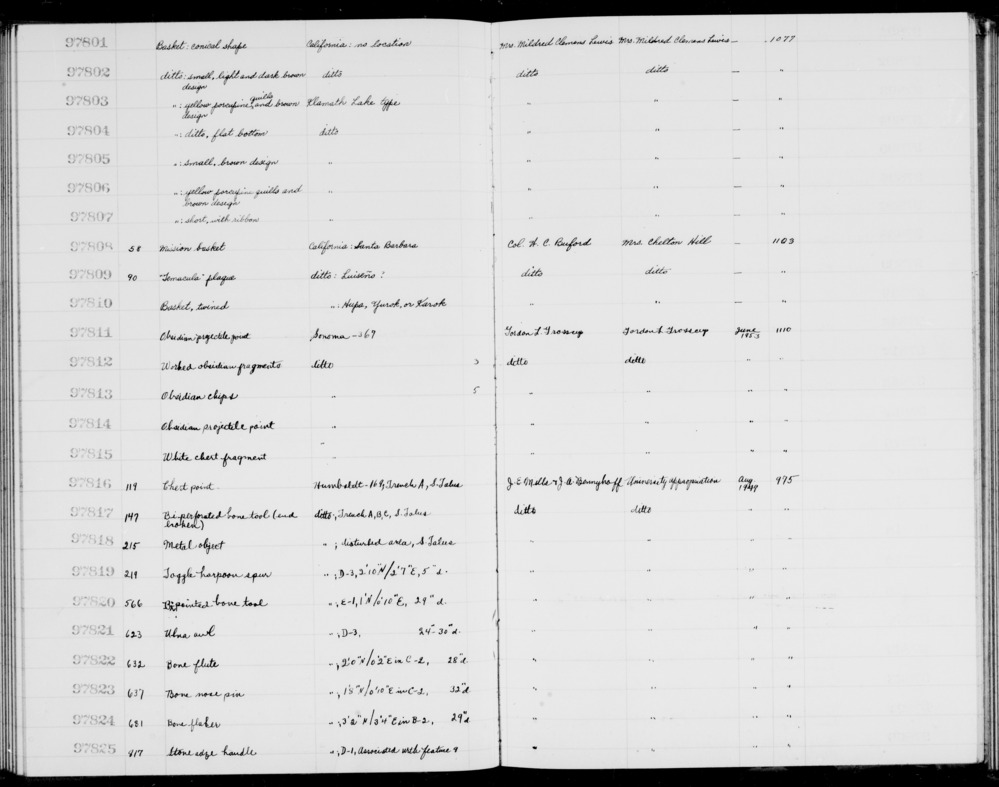 97801 Basket: conical shape California: no location Mrs. Mildred Clemens Lewis Mrs. Mildred Clemens Lewis — 1077
97802 ditto: small, light and dark brown design ditto ditto ditto — ditto
97803 ": yellow porcupine quills and brown design Klamath Lake type " " — "
97804 ": ditto, flat bottom ditto " " — "
97805 ": small, brown design " " " — "
97806 ": yellow porcupine quills and brown design " " " — "
97807 ": short, with ribbon " " " — "
97808 58 Mission basket California: Santa Barbara Col. H. C. Mrs. Chelton Hill — 1103
97809 90 "Temacula" plaque ditto: Luiseño? ditto ditto — "
97810 Basket, twined ": Hupa, Yurok, or Karok " " — "
97811 Obsidian projectile point Sonoma-367 Gordon L Grosscup Gordon L Grosscup June 1953 1110
97812 Worked obsidian fragments ditto 3 ditto ditto " "
97813 Obsidian chips " 5 " " " "
97814 Obsidian projectile point " " " " "
97815 White chert fragment " " " " "
97816 119 Chert point Humboldt-169, Trench A, S. Talus J. E. Mills & J. A. Bennyhoff University appropriation Aug. 1949 975
97817 147 Bi-perforated bone tool (end broken) ditto; Trench A, B, C, S. Talus ditto ditto " "
97818 215 Metal object "; disturbed area, S. Talus " " " "
97819 219 Toggle harpoon spur "; D-3, 2'10"N/2'7"E, 5"d. " " " "
97820 566 Bipointed bone tool "; E-1, 1'N/0'10"E, 29"d. " " " "
97821 623 Ulna awl "; D-3, 24"-30"d. " " " "
97822 632 Bone flute "; 2'0"N/0'2"E in C-2, 28"d. " " " "
97823 637 Bone nose pin "; 1'8"N/0'10"E in C-2, 32"d. " " " "
97824 681 Bone flaker "; 3'2"N/3'4"E in B-2, 29"d. " " " "
97825 817 Stone adge handle "; D-1, Associated with feature 9 " " " "